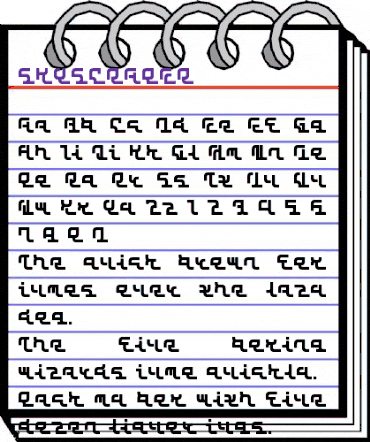 SKYSCRAPER
Aa Bb Cc Dd Ee Ff Gg
Hh Ii Jj Kk Ll Mm Nn Oo
Pp Qq Rr Ss Tt Uu Vv
Ww Xx Yy Zz 1 2 3 4 5 6
7 8 9 0
The quick brown fox
jumps over the lazy
dog.
The five boxing
wizards jump quickly.
Pack my box with five
dozen liquor jugs.